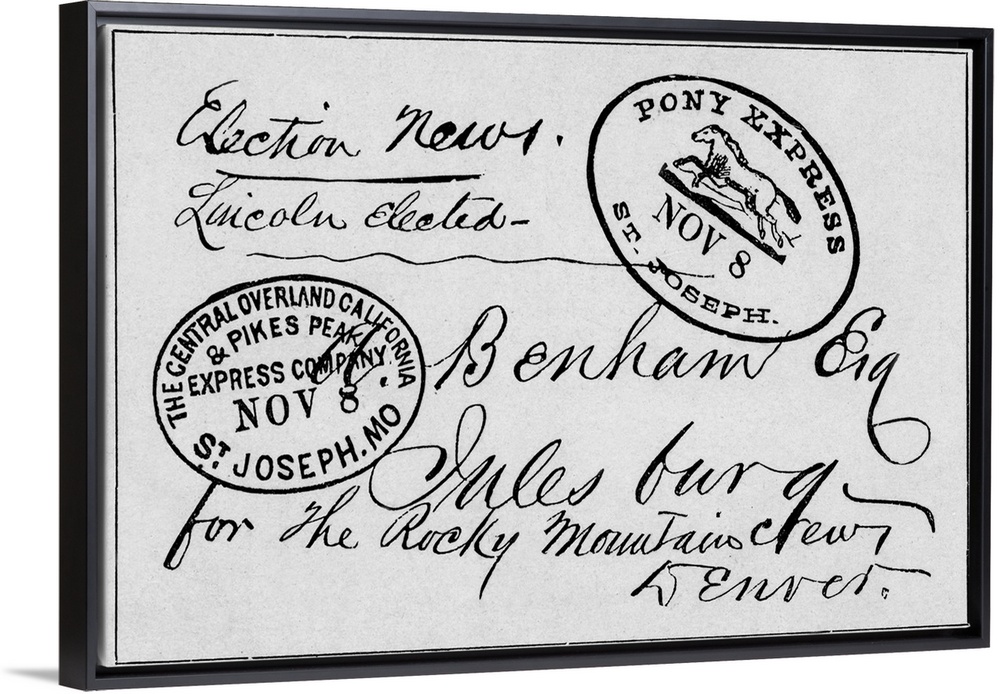 Election News.
Lincoln Elected-
PONY EXPRESS
NOV 8
ST. JOSEPH.
THE CENTRAL OVERLAND CALIFORNIA
& PIKES PEAK
EXPRESS COMPANY
NOV 8
ST. JOSEPH. MO
A. Benham Esq
Julesburg
for the Rocky Mountain News
Denver.